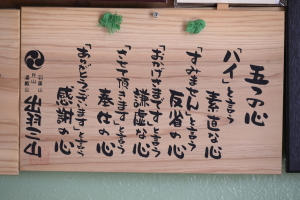 五つの心
「ハイ」と言う
素直な心
「すみません」と言う
反省の心
「おかげさまです」と言う
謙虚な心
「させて頂きます」と言う
奉仕の心
「ありがとうございます」と言う
感謝の心
出羽三山
羽黒山
月山
湯殿山